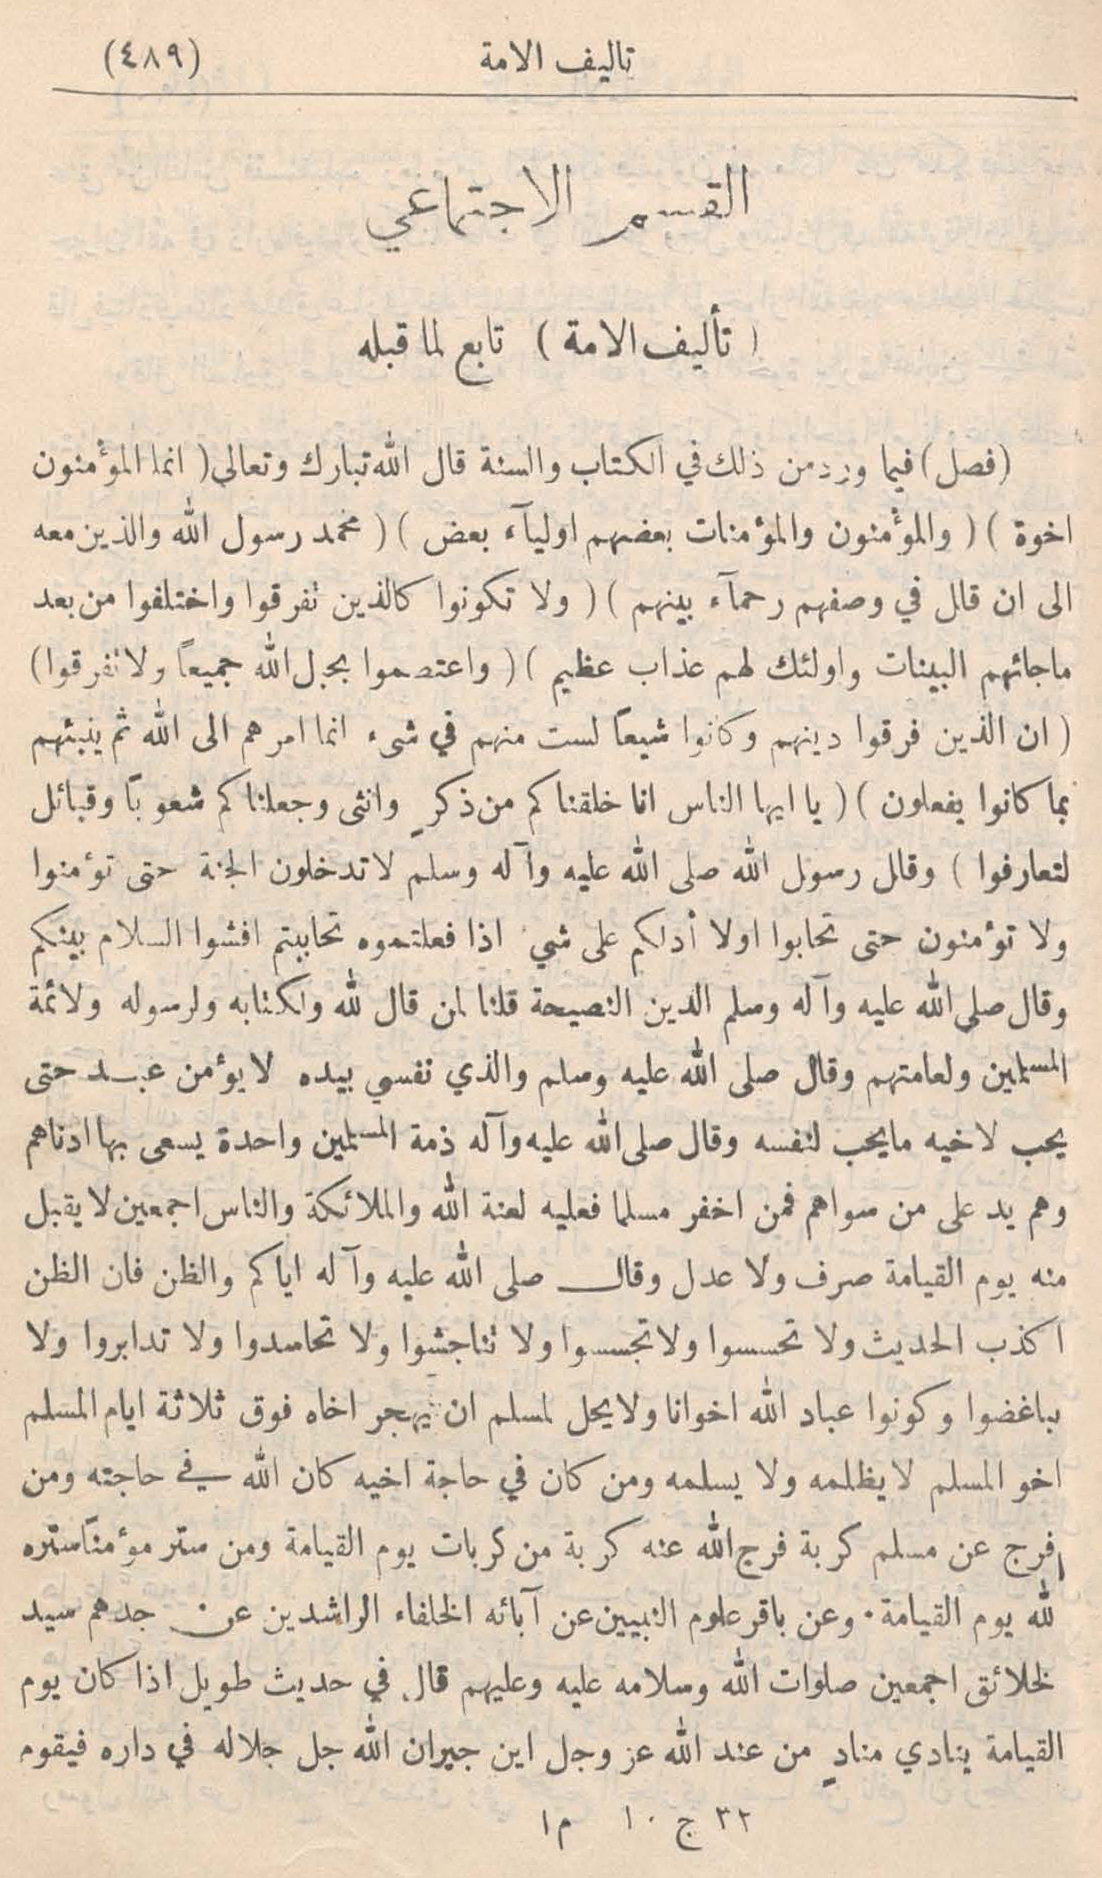 تاليف الامة (٤٨٩)
القسم الاجتماعي
( تأليف الامة ) تابع لما قبله
(فصل) فيما ورد من ذلك في الكتاب والسنة قال الله تبارك وتعالى ( انما المؤمنون
اخوة ) ( والمؤمنون والمؤمنات بعضهم اوليآء بعض ) ( محمد رسول الله والذين معه
الى ان قال في وصفهم رحمآء بينهم ) ( ولا تكونوا كالذين تفرقوا واختلفوا من بعد
ماجائهم البينات واولئك لهم عذاب عظيم ) ( واعتصموا بحبل الله جميعاً ولا تفرقوا )
( ان الذين فرقوا دينهم وكانوا شيعاً لست منهم في شىء انما امرهم الى الله ثم ينبئهم
بما كانوا يفعلون ) ( يا ايها الناس انا خلقناكم من ذكرٍ وانثى وجعلناكم شعوباً وقبائل
لتعارفوا ) وقال رسول الله صلى الله عليه وآله وسلم لا تدخلون الجنة حتى تؤمنوا
ولا تؤمنون حتى تحابوا اولا أدلكم على شيء اذا فعلتموه تحاببتم افشوا السلام بينكم
وقال صلى الله عليه وآله وسلم الدين النصيحة قلنا لمن قال لله ولكتابه ولرسوله ولائمة
المسلمين ولعامتهم وقال صلى الله عليه وسلم والذي نفسي بيده لا يؤمن عبد حتى
يحب لاخيه مايحب لنفسه وقال صلى الله عليه وآله ذمة المسلمين واحدة يسعى بها ادناهم
وهم يد على من سواهم فمن اخفر مسلما فعليه لعنة الله والملائكة والناس اجمعين لا يقبل
منه يوم القيامة صرف ولا عدل وقال صلى الله عليه وآله اياكم والظن فان الظن
اكذب الحديث ولا تحسسوا ولا تجسسوا ولا تناجشوا ولا تحاسدوا ولا تدابروا ولا
تباغضوا وكونوا عباد الله اخوانا ولا يحل لمسلم ان يهجر اخاه فوق ثلاثة ايام المسلم
اخو المسلم لا يظلمه ولا يسلمه ومن كان في حاجة اخيه كان الله في حاجته ومن
فرج عن مسلم كربة فرج الله عنه كربة من كربات يوم القيامة ومن ستر مؤمناً ستره
لله يوم القيامة . وعن باقر علوم النبيين عن آبائه الخلفاء الراشدين عن جدهم سيد
لخلائق اجمعين صلوات الله وسلامه عليه وعليهم قال في حديث طويل اذا كان يوم
القيامة ينادي منادٍ من عند الله عز وجل اين جيران الله جل جلاله في داره فيقوم
٣٢ ج ١٠ م١